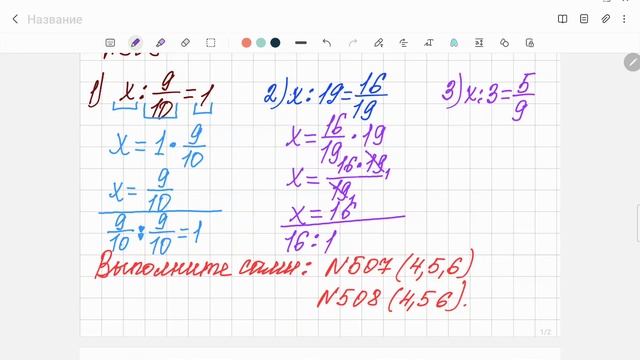 Название
1) x : 9/10 = 1
x = 1 · 9/10
x = 9/10
9/10 : 9/10 = 1
2) x : 19 = 16/19
x = 16/19 · 19
x = 16·19/19
x = 16
16 : 1
3) x : 3 = 5/9
Выполните сами: N507 (4,5,6)
N508 (4,5 6).
1/2